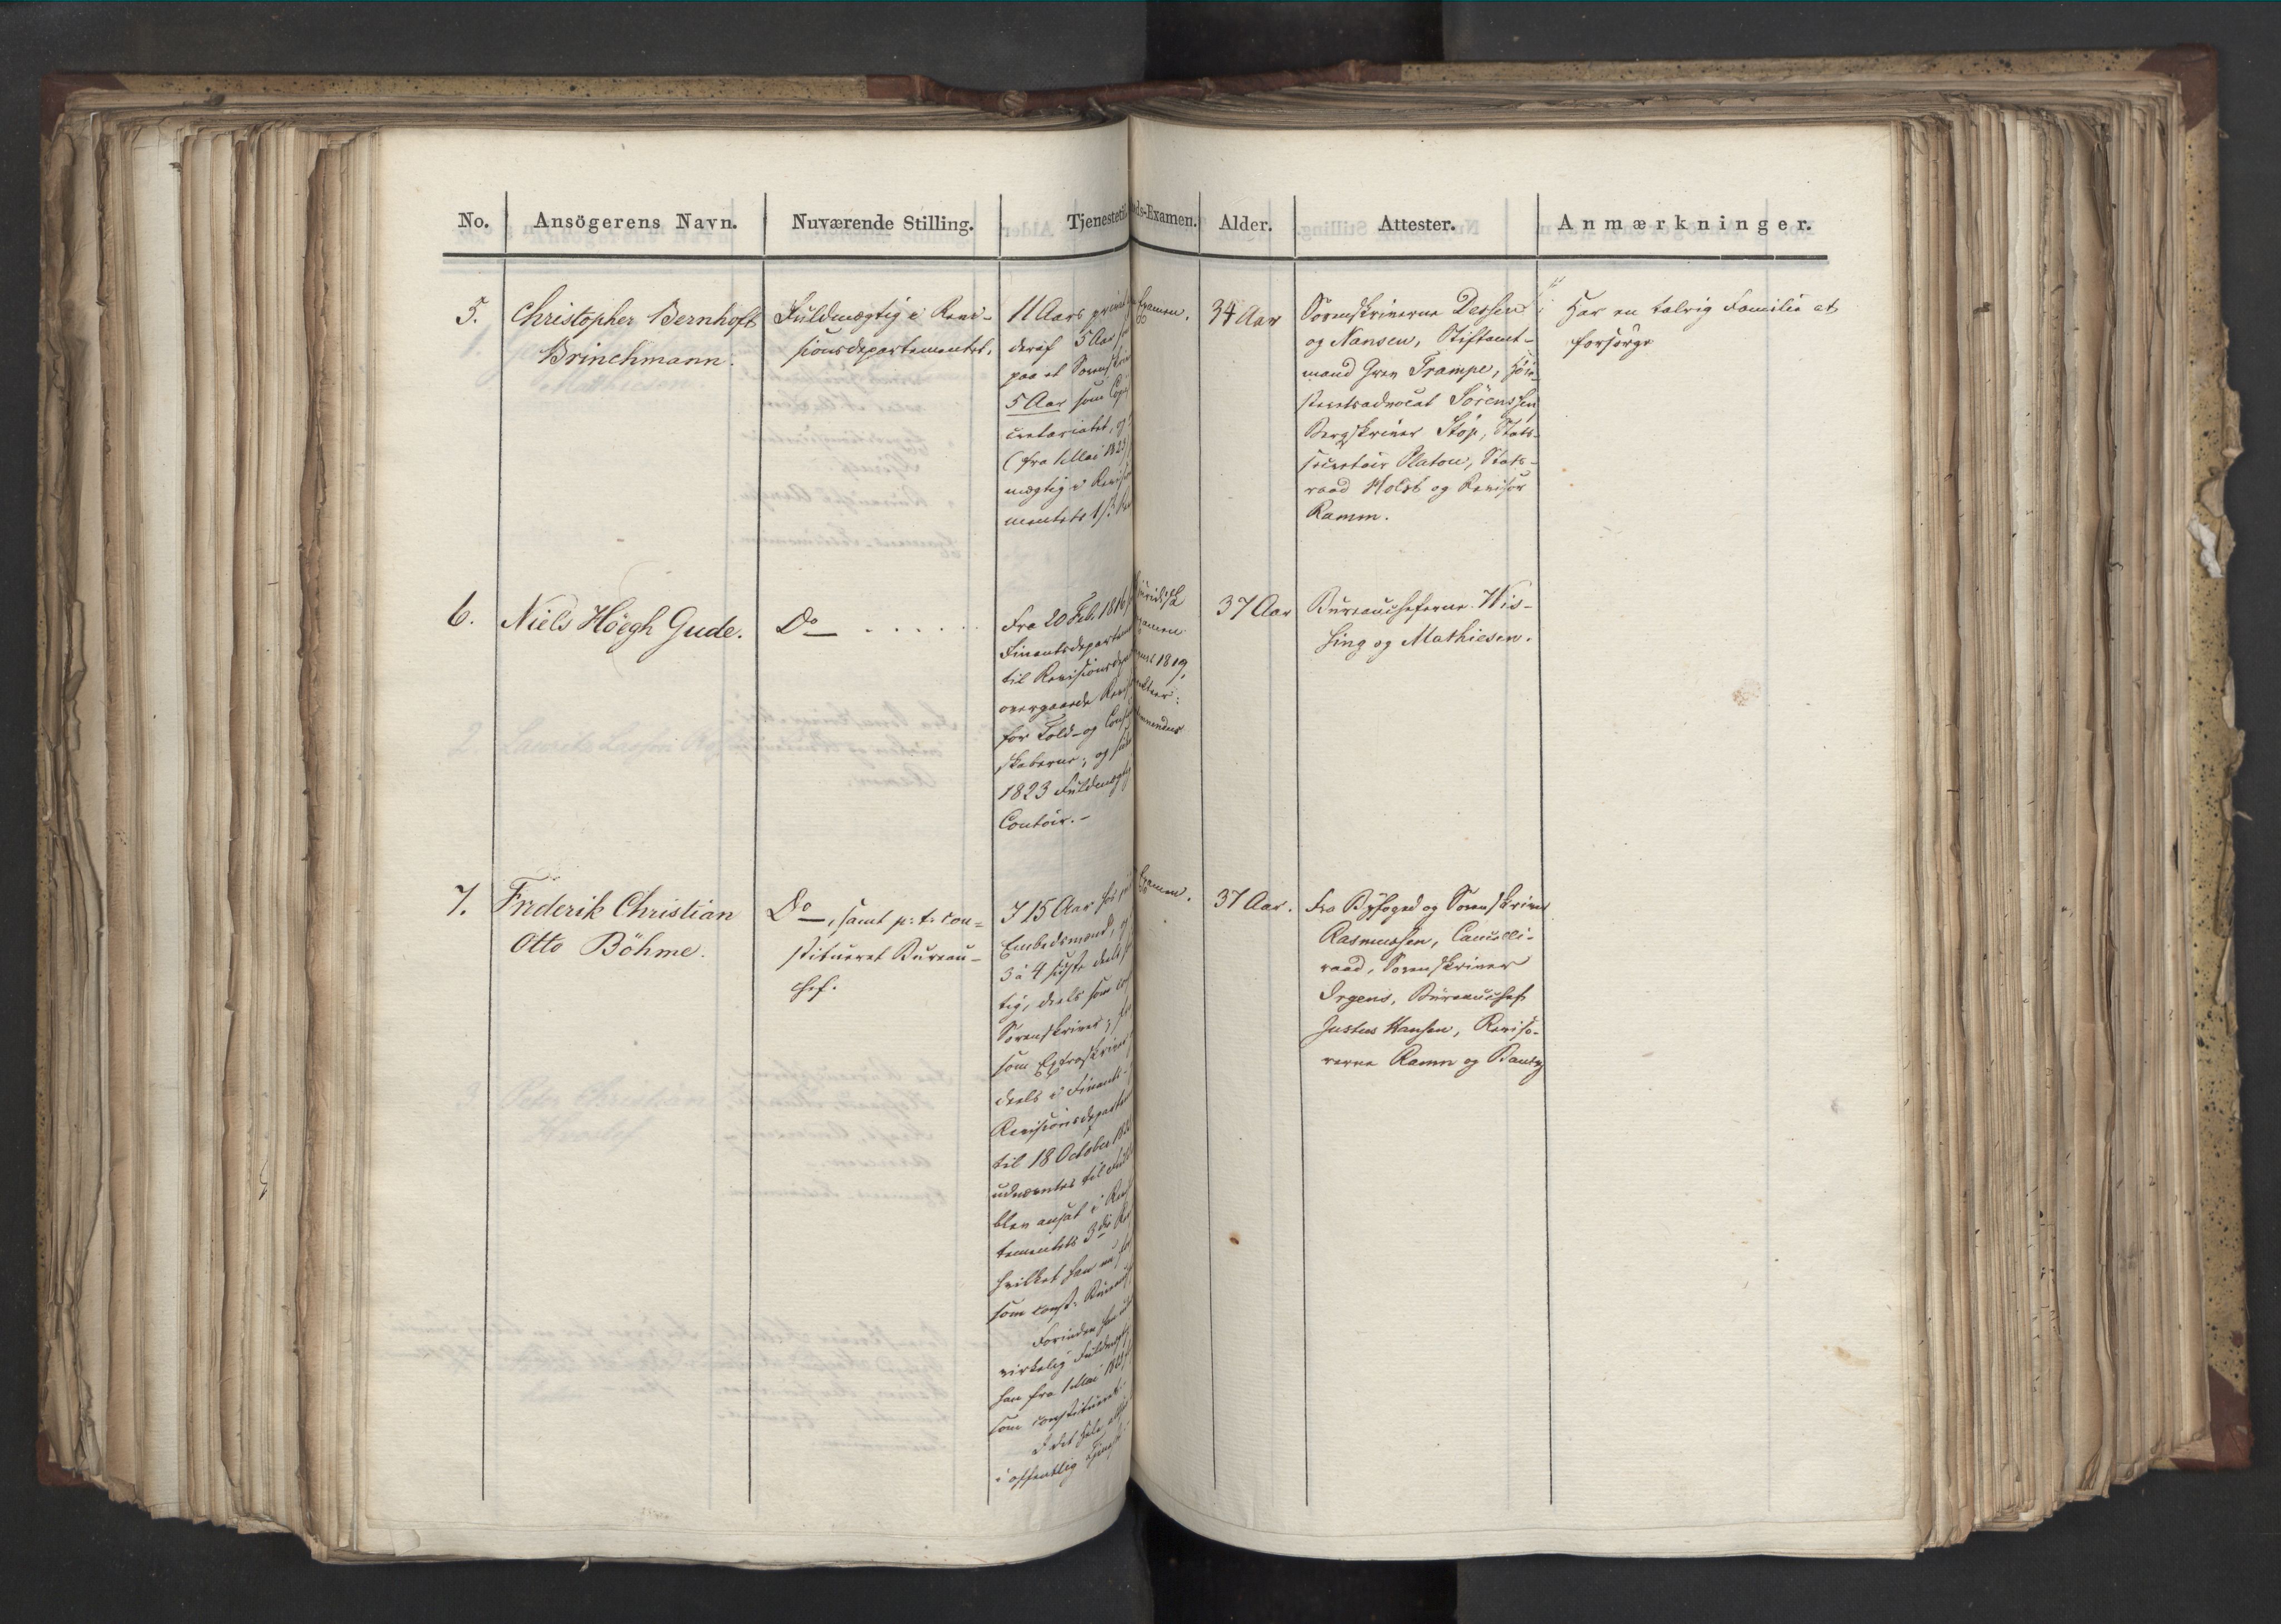 No. Ansögerens Navn. Nuværende Stilling. Tjenesteti ds-Examen. Alder. Attester. Anmærkninger.
5.
Christopher Bernhoft
Brinchmann.
Fuldmægtig i Revi-
sionsdepartementet.
11 Aars privat
deraf 5 Aar
paa et Sorenskri
5 Aar som Copi
cretariatet, og
(fra 1 Mai 1823)
mægtig i Revisi
mentets 1ste
Examen.
34 Aar
Sorenskriverne Dessen
og Nansen, Stiftamt-
mand Grev Trampe, Höie-
steretsadvocat Sörenssen
Bergskriver Stöp, Stats-
secretair Platou, Stats-
raad Holst og Revisor
Ramm.
Har en talrig Familie at
forsörge
6.
Niels Höegh Gude.
Do — . . . . .
Fra 20 Feb. 1816
Finantsdepartem
til Revisionsdep
overgaaede Revi
for Told- og Con
skaberne; og
1823 Fuldmægtig
Contoir.-
juridisk
xamen
1819,
37 Aar
Bureaucheferne Wis-
sing og Mathiesen.
7.
Frederik Christian
Otto Böhme.
Do —, samt p: t: con-
stitueret Bureau-
chef.
I 15 Aar hos
Embedsmænd, og
3 à 4 sidste deels
tig, deels som
Sorenskriver;
som Extraskriver
deels i Finants-
Revisionsdepartem
til 18 October 18
udnævntes til Fuld
blev ansat i Revi
tementets 3die
hvilket han nu
som const: Bureau
Forinden han
virkelig Fuldmægtig
han fra 1 Mai 18
som constitueret
I det hele
i offentlig Tjeneste
Examen.
37 Aar.
Fra Byfoged og Sorenskriver
Rasmussen, Cancelli-
raad, Sorenskriver
Irgens, Bureauchef
Justus Hansen, Reviso-
rerne Ramm og Bautz